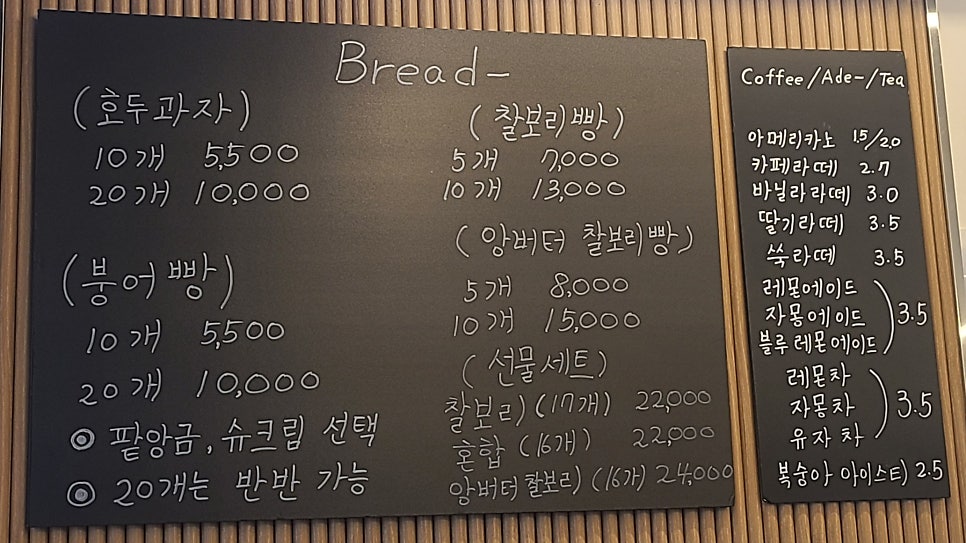 Bread-
(호두과자)
10개 5,500
20개 10,000
(붕어빵)
10개 5,500
20개 10,000
◉ 팥앙금, 슈크림 선택
◉ 20개는 반반 가능
(찰보리빵)
5개 7,000
10개 13,000
(앙버터 찰보리빵)
5개 8,000
10개 15,000
(선물세트)
찰보리) (17개) 22,000
혼합 (16개) 22,000
앙버터찰보리) (16개) 24,000
Coffee/Ade-/Tea
아메리카노 1.5/2.0
카페라떼 2.7
바닐라라떼 3.0
딸기라떼 3.5
쑥라떼 3.5
레몬에이드
자몽에이드 ) 3.5
블루레몬에이드
레몬차
자몽차 ) 3.5
유자차
복숭아 아이스티) 2.5